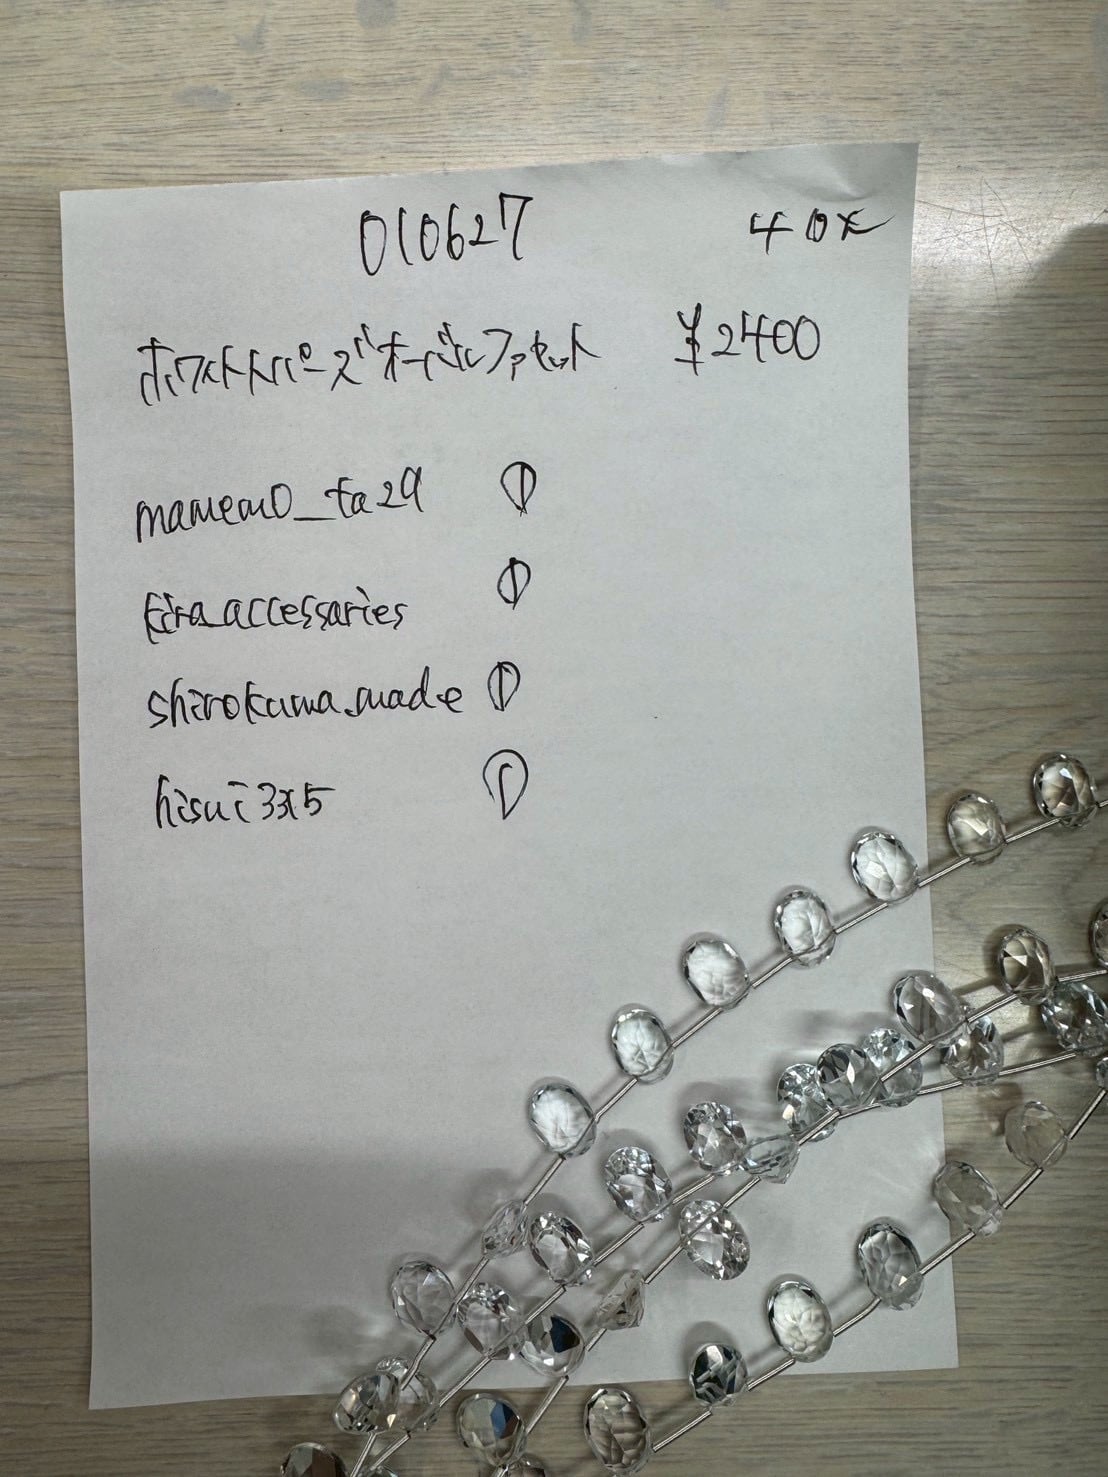 010627 40%
ホワイトトパーズオーバルファセット ¥2400
mamemo_ta29 ①
kira_accessaries ①
shirokuma.made ①
hisui3x5 ①